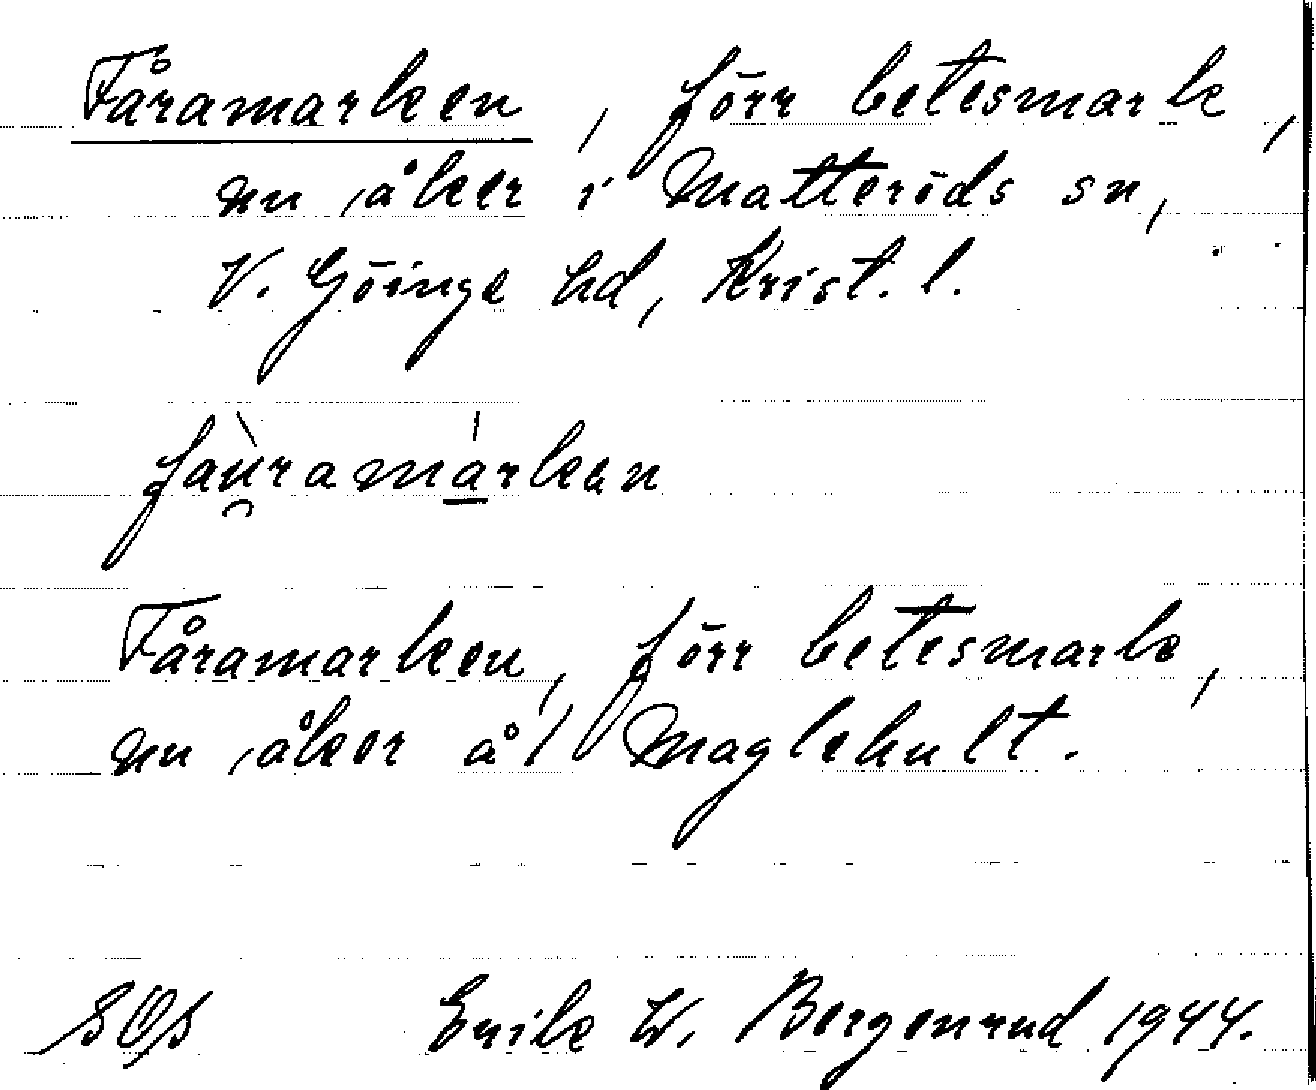 Fåramarken, förr betesmark,
nu åker i Matteröds sn,
V. Göinge hd, Krist. l.
faù̯ramá̱rkan
Fåramarken, förr betesmark,
nu åker å/ Maglehult.
SOA Erik W. Bergenrud 1944.